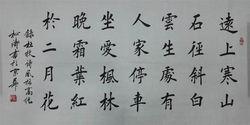 遠上寒山
石徑斜白
雲生處有
人家停車
坐愛楓林
晚霜葉紅
於二月花
錄杜牧詩
書於京華